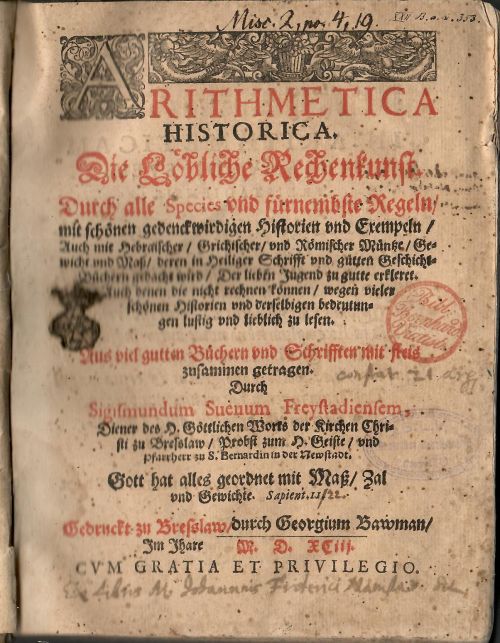 Misc. 2, no. 4, 19.
ARITHMETICA
HISTORICA.
Die Löbliche Rechenkunst.
Durch alle Species vnd fürnembste Regeln/
mit schönen gedenckwirdigen Historien vnd Exempeln/
Auch mit Hebraischer/ Grichischer/ vnd Römischer Müntze/ Ge-
wicht vnd Maß/ deren in Heiliger Schrifft vnd gutten Geschicht-
Büchern gedacht wird/ Der lieben Jugend zu gutte erkleret.
Auch denen die nicht rechnen können/ wegen vieler
schönen Historien vnd derselbigen bedeutun-
gen lustig vnd lieblich zu lesen.
Aus viel gutten Büchern vnd Schrifften mit fleis
zusammen getragen.
Durch
Sigismundum Sueuum Freystadiensem,
Diener des H. Göttlichen Worts der Kirchen Chri-
sti zu Breslaw/ Probst zum H. Geiste/ vnd
Pfarrherr zu S. Bernardin in der Newstadt.
Gott hat alles geordnet mit Maß/ Zal
vnd Gewichte. Sapient. 11/22.
Gedruckt zu Breslaw/ durch Georgium Bawman/
Im Jhare M. D. XCIII.
CVM GRATIA ET PRIVILEGIO.